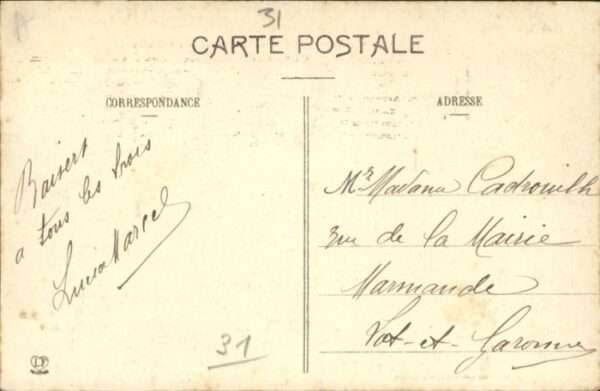 31
CARTE POSTALE
CORRESPONDANCE
Baisers
a tous les trois
Lucia Marcel
31
ADRESSE
Mr Madame
rue de la Mairie
Marmande
Lot-et-Garonne